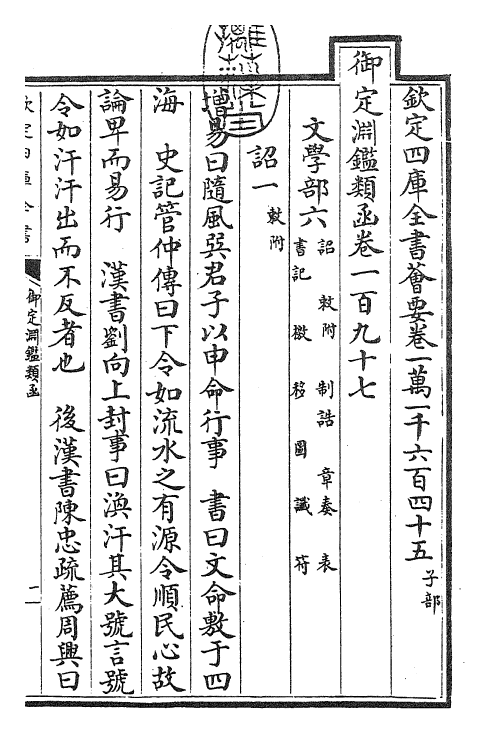 欽定四庫全書薈要卷一萬一千六百四十五 子部
御定淵鑑類函卷一百九十七
文學部六 詔 敕附 制誥 章奏 表
書記 檄 移 圖 讖 符
詔一 敕附
增易曰隨風巽君子以申命行事 書曰文命敷于四
海 史記管仲傳曰下令如流水之有源令順民心故
論卑而易行 漢書劉向上封事曰渙汗其大號言號
令如汗汗出而不反者也 後漢書陳忠疏薦周興曰
欽定四庫全書
御定淵鑑類函